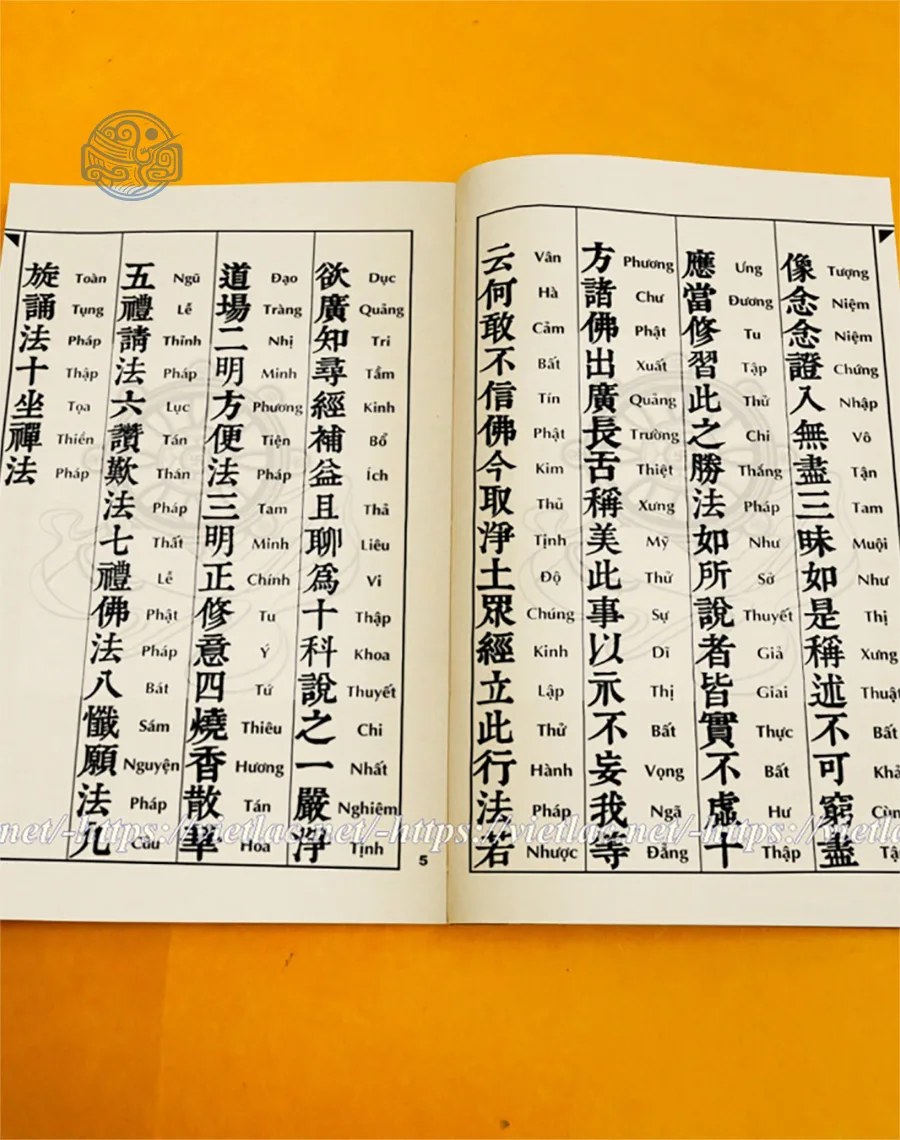 像念念證入無盡三昧如是稱述不可窮盡
Tượng Niệm Niệm Chứng Nhập Vô Tận Tam Muội Như Thị Xưng Thuật Bất Khả
應當修習此之勝法如所說者皆實不虛十
Ưng Đương Tu Tập Thử Chi Thắng Pháp Như Sở Thuyết Giả Giai Thực Bất Hư Thập
方諸佛出廣長舌稱美此事以示不妄我等
Phương Chư Phật Xuất Quảng Trường Thiệt Xưng Mỹ Thử Sự Dĩ Thị Bất Vọng Ngã Đẳng
云何敢不信佛今取淨土眾經立此行法若
Vân Hà Cảm Bất Tín Phật Kim Thủ Tịnh Độ Chúng Kinh Lập Thử Hành Pháp Nhược
欲廣知尋經補益且聊爲十科說之一嚴淨
Dục Quảng Tri Tầm Kinh Bổ Ích Thả Liêu Vi Thập Khoa Thuyết Chi Nhất Nghiêm Tịnh
道場二明方便法三明正修意四燒香散華
Đạo Tràng Nhị Minh Phương Tiện Pháp Tam Minh Chính Tu Ý Tứ Thiêu Hương Tán Hoa
五禮請法六讚歎法七禮佛法八懺願法九
Ngũ Lễ Thỉnh Pháp Lục Tán Thán Pháp Thất Lễ Phật Pháp Bát Sám Nguyện Pháp Cửu
旋誦法十坐禪法
Toàn Tụng Pháp Thập Tọa Thiền Pháp
5